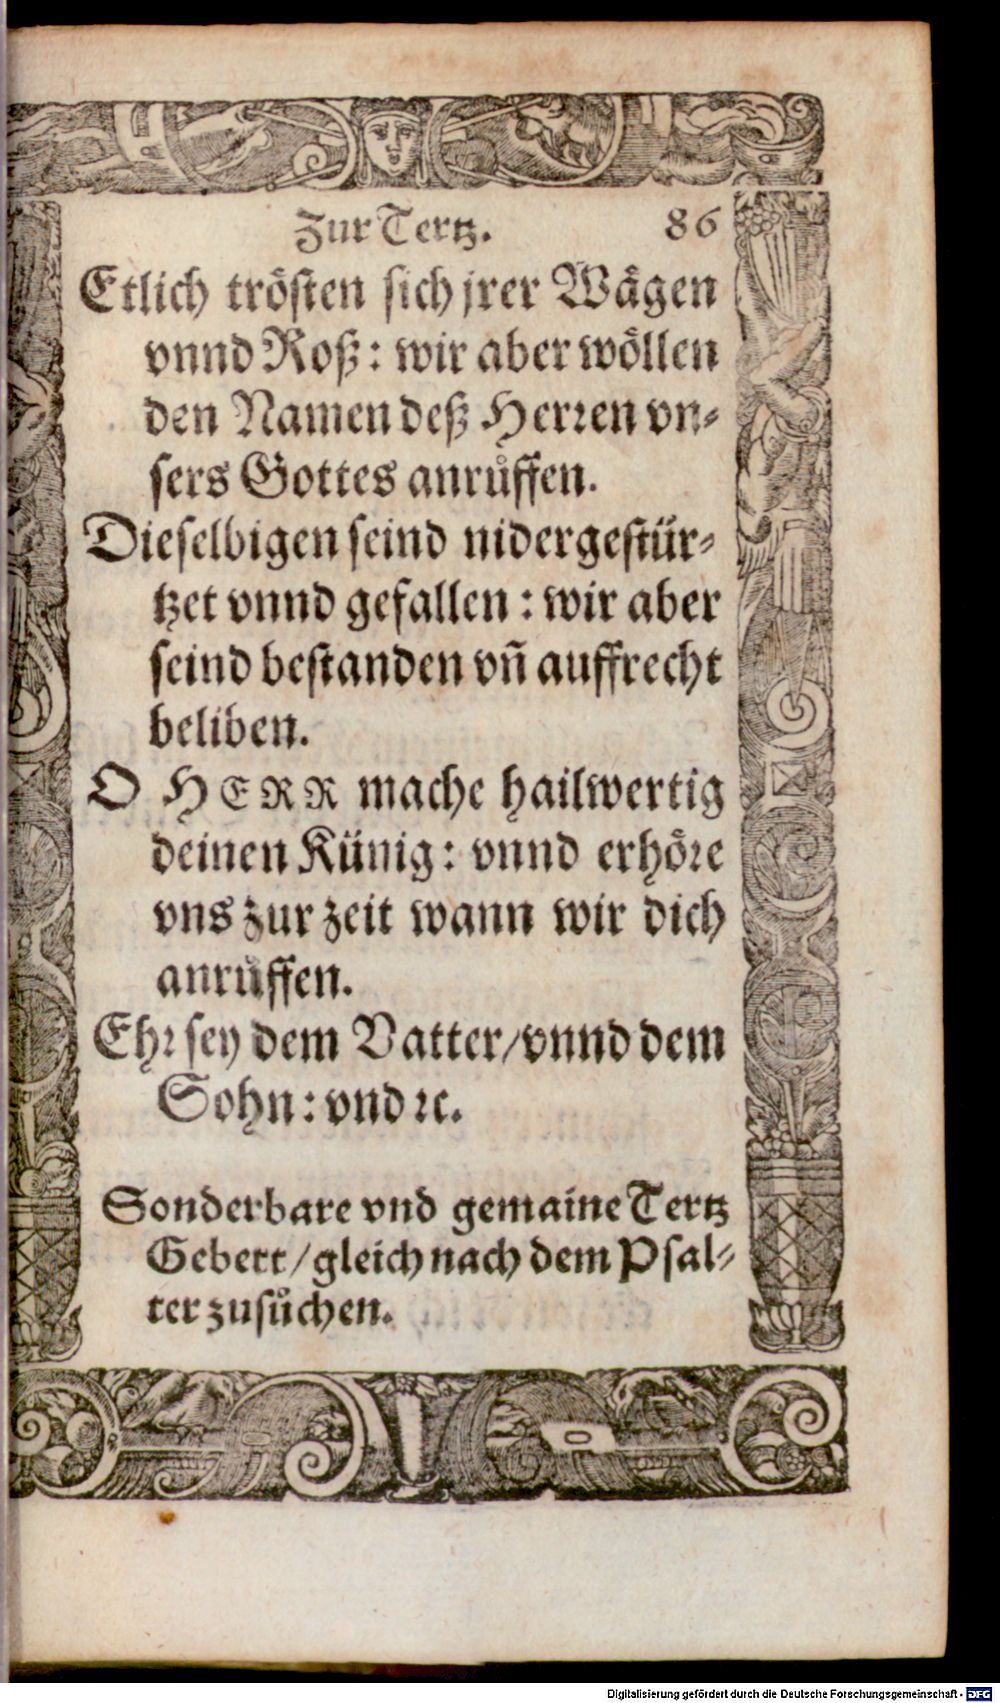 Zur Tertz. 86
Etlich trösten sich jrer Wägen
vnnd Roß: wir aber wöllen
den Namen deß Herꝛen vn⸗
sers Gottes anrůffen.
Dieselbigen seind nidergestür⸗
tzet vnnd gefallen: wir aber
seind bestanden vñ auffrecht
beliben.
O HERR mache hailwertig
deinen Künig: vnnd erhöꝛe
vns zur zeit wann wir dich
anrůffen.
Ehꝛ sey dem Vatter/vnnd dem
Sohn: vnd ꝛc.
Sonderbare vnd gemaine Tertz
Gebett/gleich nach dem Psal⸗
ter zusůchen.
Digitalisierung gefördert durch die Deutsche Forschungsgemeinschaft - DFG